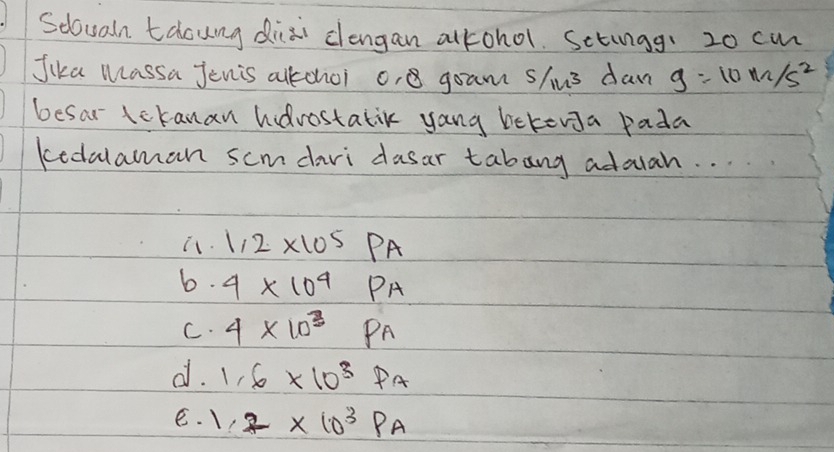 Sebuah tabung diisi dengan alkohol. Setinggi 20 cm
Jika Massa Jenis alkohol 0,8 gram s/m3 dan g = 10 m/s²
besar tekanan hidrostatik yang bekerja pada
kedalaman 5cm dari dasar tabang adalah.....
a. 1,2 x 10⁵ PA
b. 4 x 10⁴ PA
c. 4 x 10³ PA
d. 1,6 x 10³ PA
e. 1,2 x 10³ PA